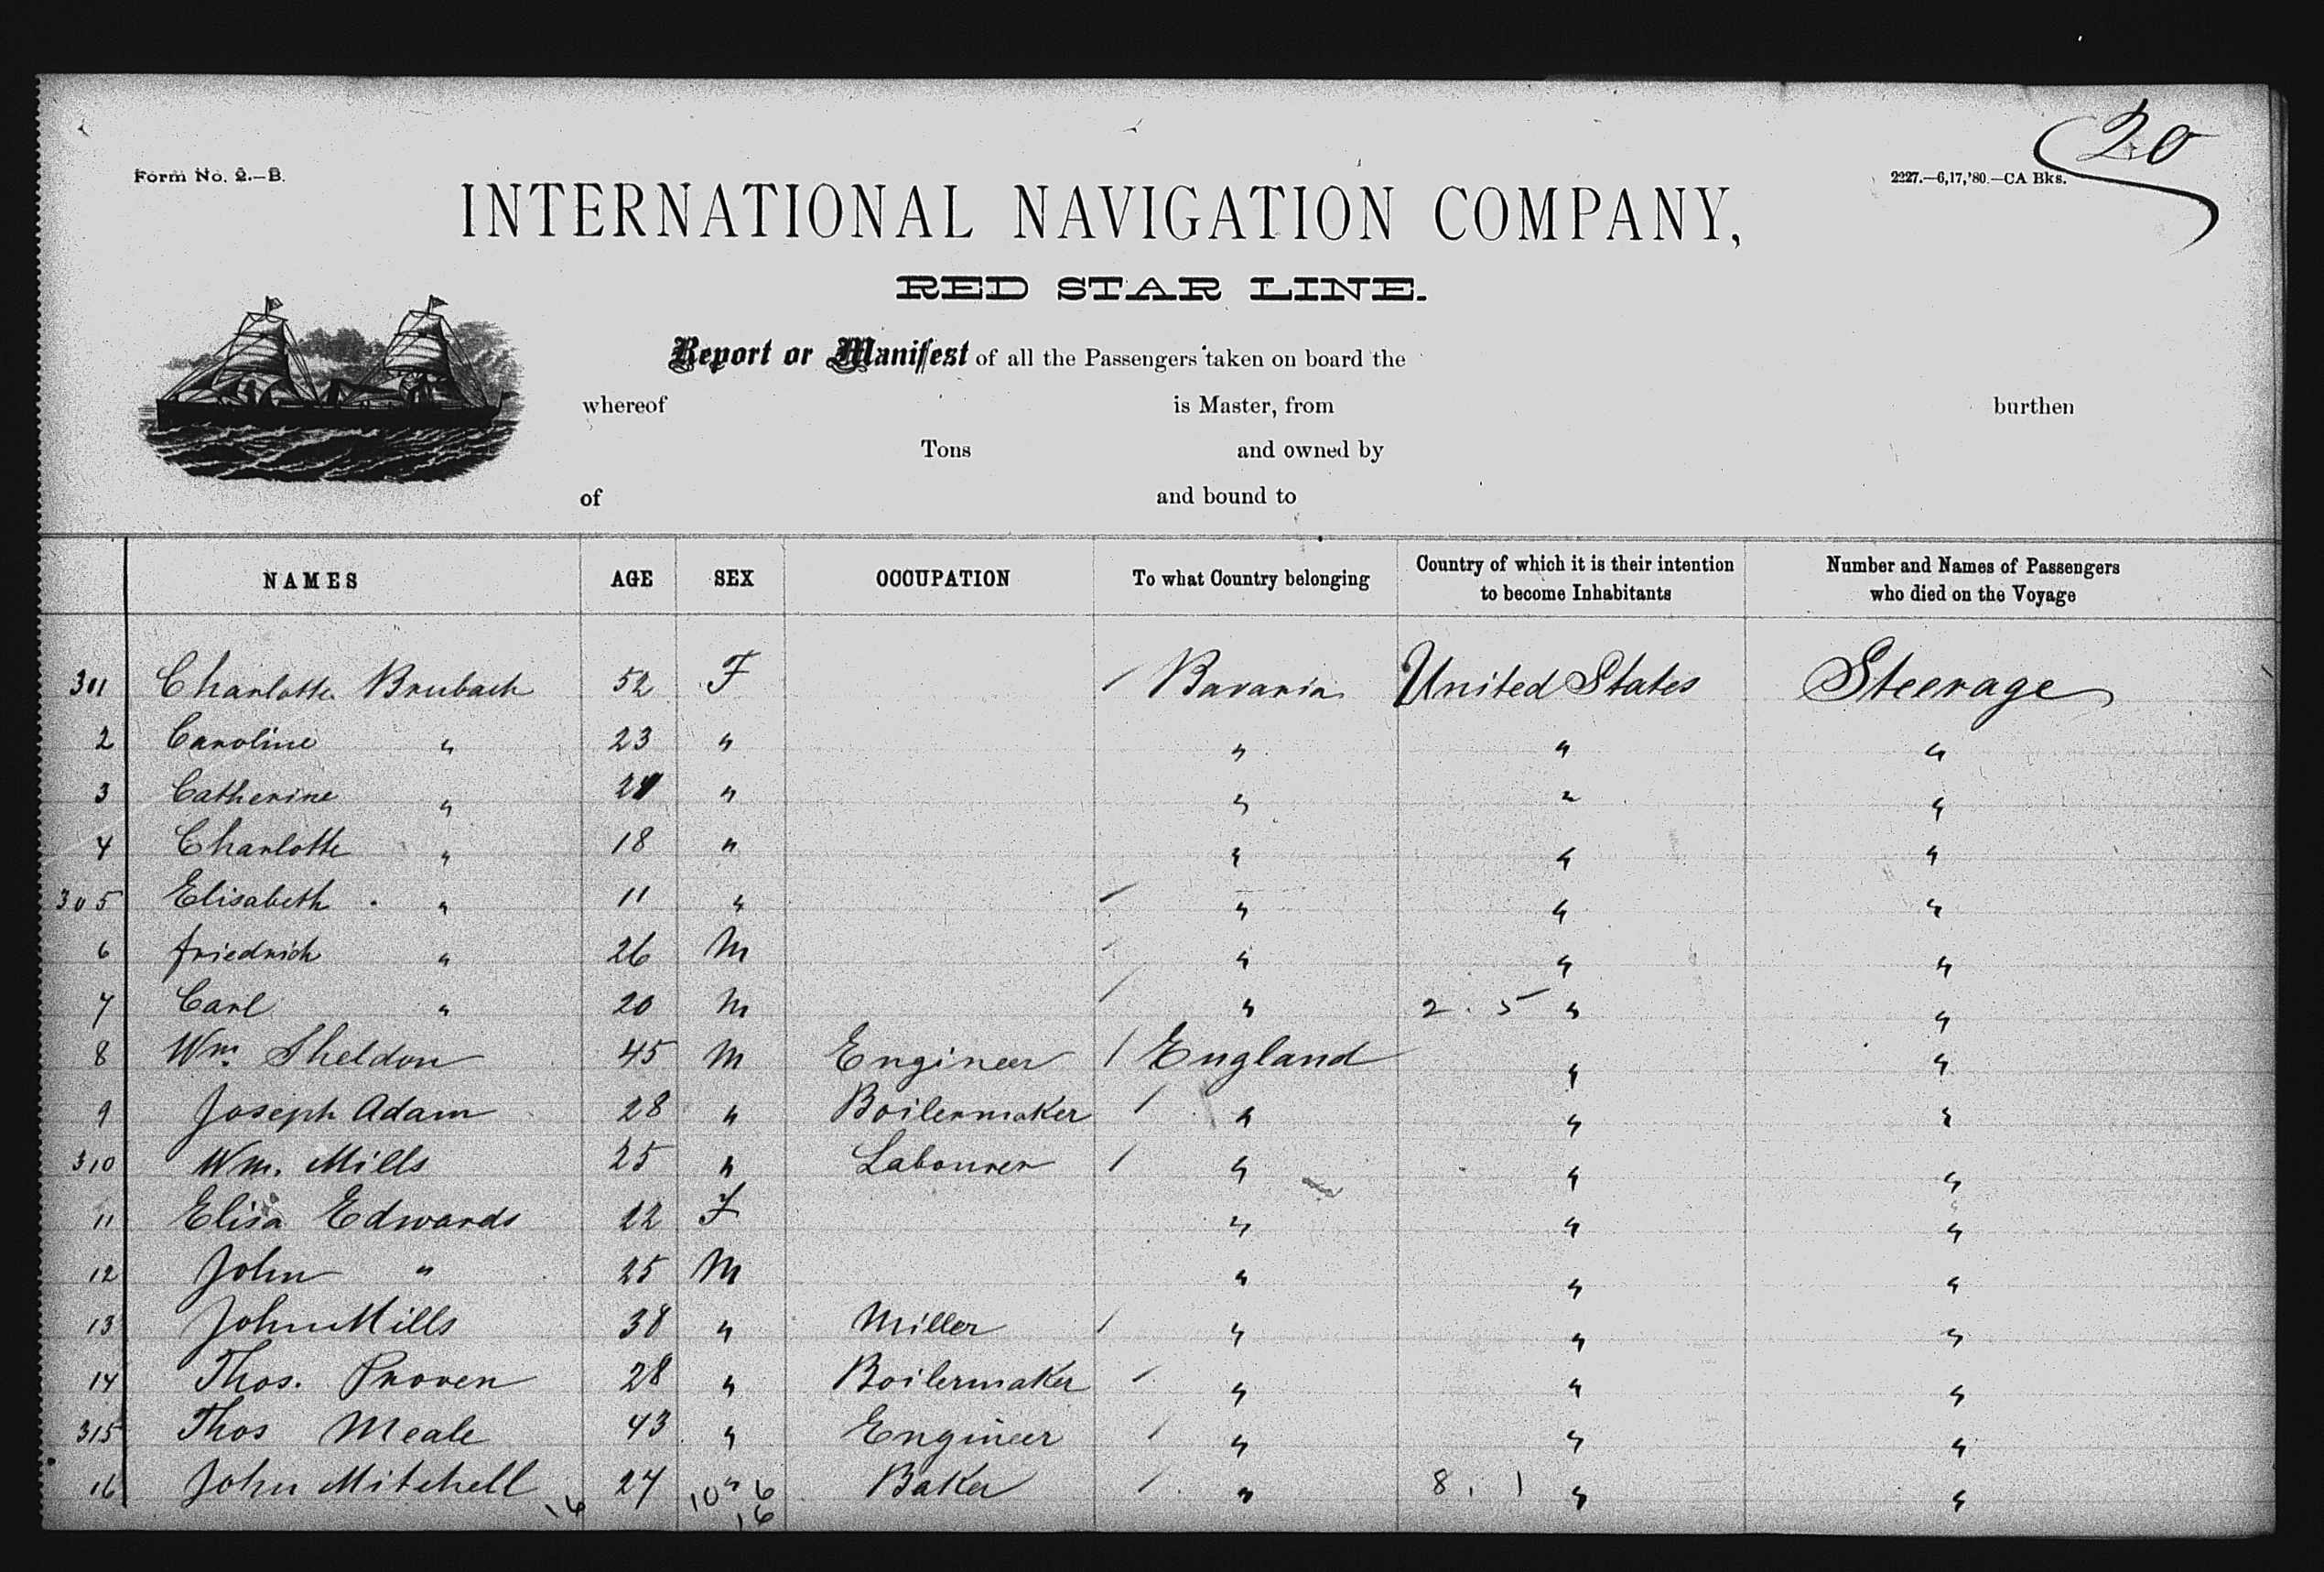 20
Form No. 2.—B.
2227.—6,17,'80.—CA Bks.
INTERNATIONAL NAVIGATION COMPANY,
RED STAR LINE.
Report or Manifest of all the Passengers taken on board the
whereof is Master, from burthen
Tons and owned by
of and bound to
NAMES AGE SEX OCCUPATION To what Country belonging Country of which it is their intention to become Inhabitants Number and Names of Passengers who died on the Voyage
301 Charlotte Brubach 52 F / Bavaria United States Steerage
2 Caroline " 23 " " " "
3 Catherine " " " " "
4 Charlotte " 18 " " " "
305 Elisabeth " 11 " / " " "
6 friedrich " 26 M / " " "
7 Carl " 20 M / " 2. 5 " "
8 Wm. Sheldon 45 M Engineer / England " "
9 Joseph Adam 28 " Boilermaker / " " "
310 Wm. Mills 25 " Labourer / " " "
11 Elisa Edwards 22 F " " "
12 John " 25 M " " "
13 John Mills 38 " Miller / " " "
14 Thos. Proven 28 " Boilermaker / " " "
315 Thos Meale 43 " Engineer / " " "
16 John Mitchell 27 " Baker / " 8. 1 " "
16 10 6
16